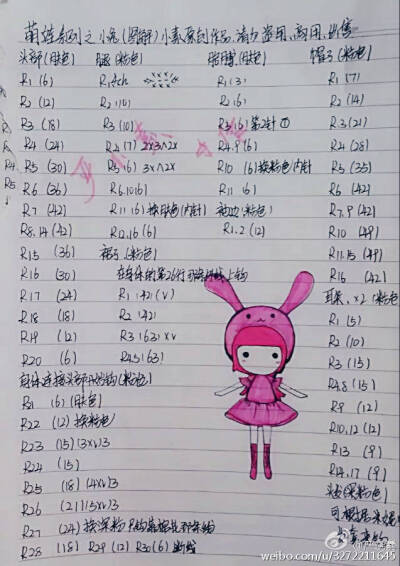 萌娃系列之小兔(图解)小素原创作品,请勿盗用,商用,出售
头部(肤色)
R1 (6)
R2 (12)
R3 (18)
R4 (24)
R5 (30)
R6 (36)
R7 (42)
R8.14 (42)
R15 (36)
R16 (30)
R17 (24)
R18 (18)
R19 (12)
R20 (6)
身体连接头部
R21 (6) (肤色)
R22 (12) 换粉色
R23 (15) (3xv)3
R24 (15)
R25 (18) (4xv)3
R26 (21) (5xv)3
R27 (24) 换深粉
R28 (18) R29 (12) R30 (6) 断线
腿 (粉色)
R1 6ch
R2 (10)
R3 (10)
R4 (7) 2x3∧2x
R5 (6) 3x∧2x
R6.10 (6)
R11 (6) 换肤色(内针)
R12.16 (6)
裙子 (粉色)
R1 (42) (v)
R2 (42)
R3 (63) xv
R4.5 (63)
胳膊 (肤色)
R1 (3)
R2 (6)
R3 (6) 第2针
R4.9 (6)
R10 (6) 换粉色(内针)
R11 (6)
(粉色)
R1.2 (12)
帽子 (粉色)
R1 (7)
R2 (14)
R3 (21)
R4 (28)
R5 (35)
R6 (42)
R7.9 (42)
R10 (49)
R11.15 (49)
R16 (42)
耳朵 x2 (粉色)
R1 (5)
R2 (10)
R3 (15)
R4.8 (15)
R9 (12)
R10.12 (12)
R13 (9)
R14.17 (9)
头发(深粉色)
可根据
weibo.com/u/3272211645